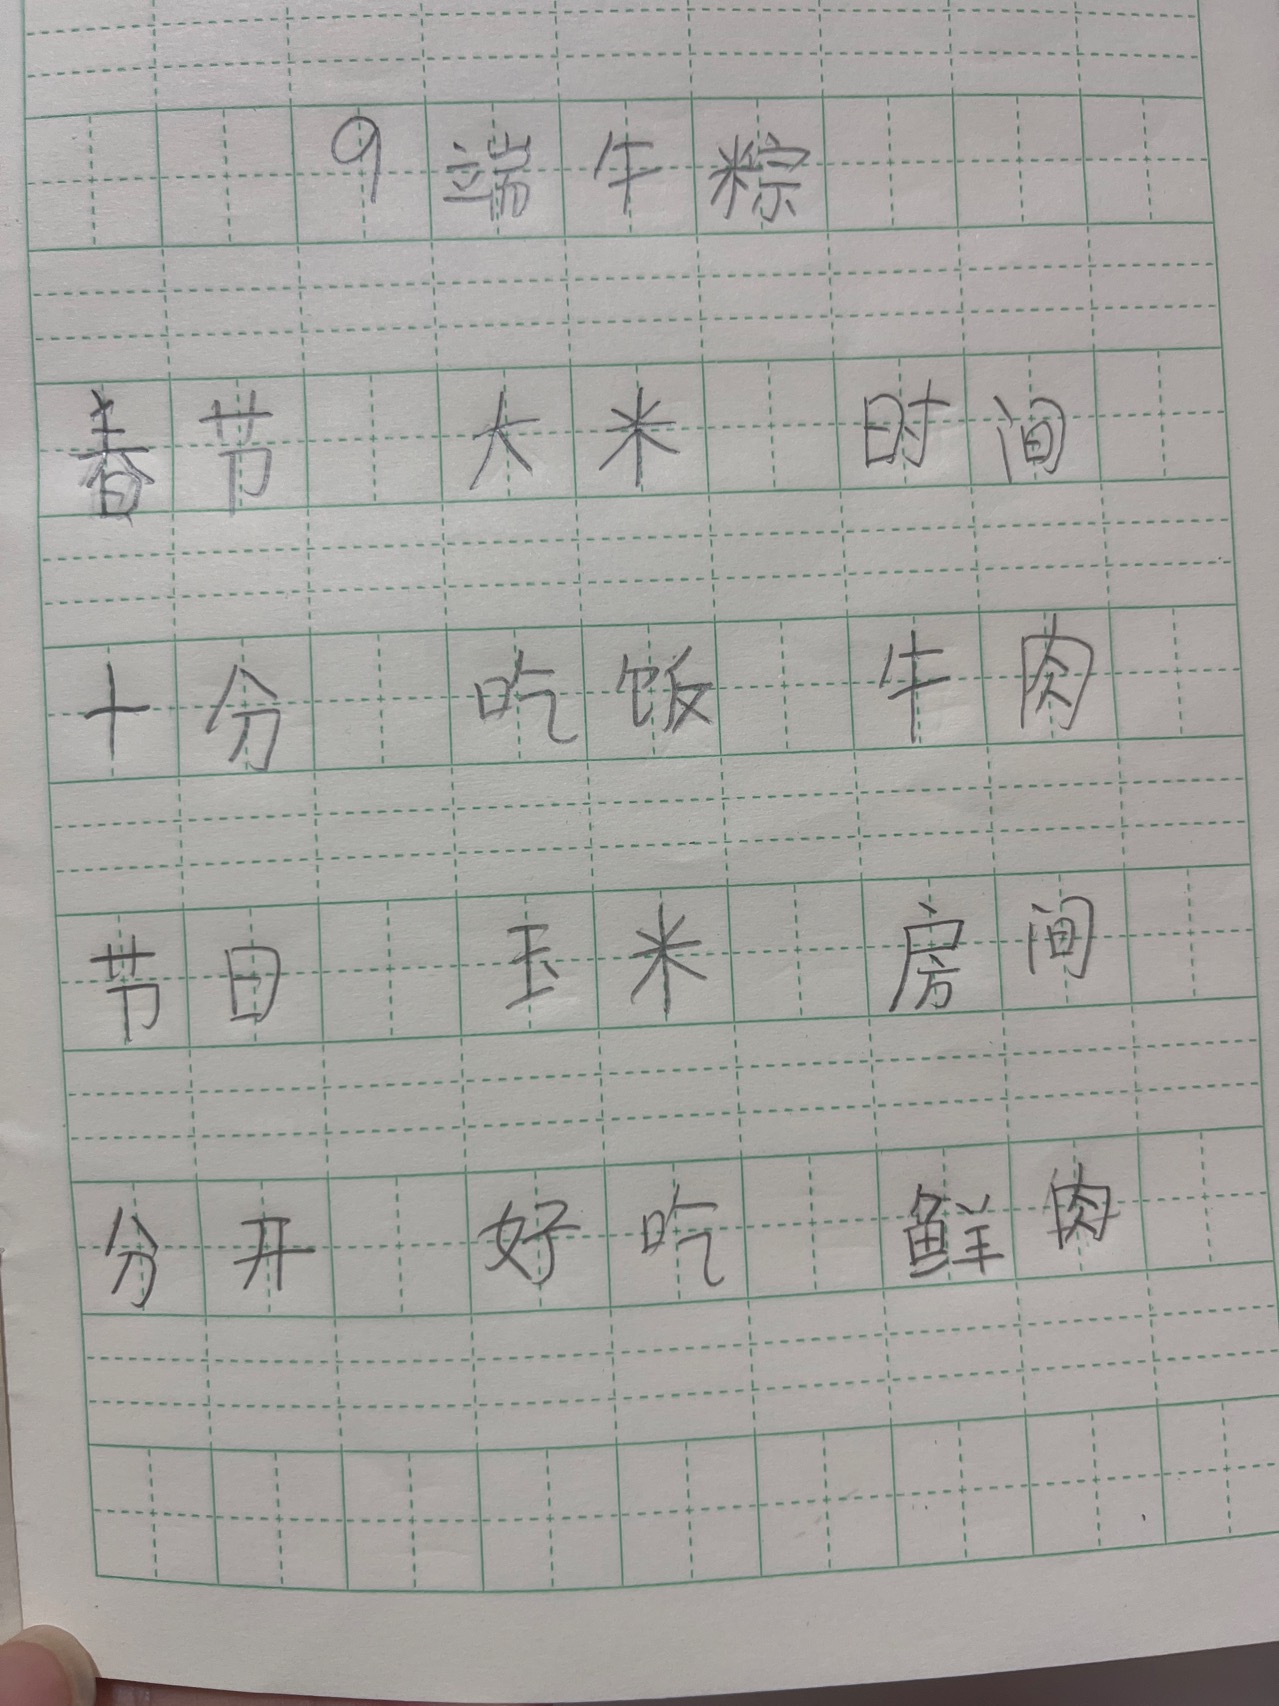 9 端午粽
春节 大米 时间
十分 吃饭 牛肉
节日 玉米 房间
分开 好吃 鲜肉